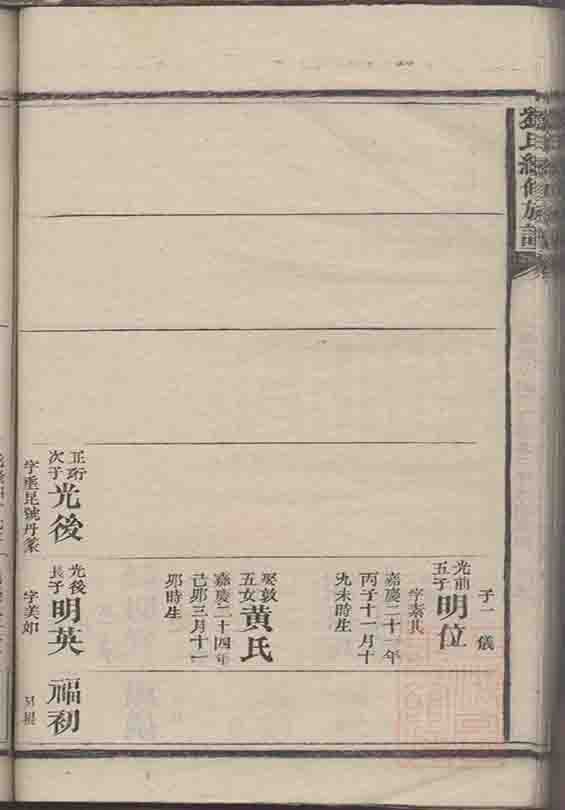 劉氏續修族譜
子一 儀
光前五子 明位
字素其
嘉慶二十一年
丙子十一月十
九未時生
娶敦五女 黃氏
嘉慶二十四年
己卯三月十一
卯時生
正珩次子 光後
字垂昆號丹篆
光後長子 明英
字美如
福初